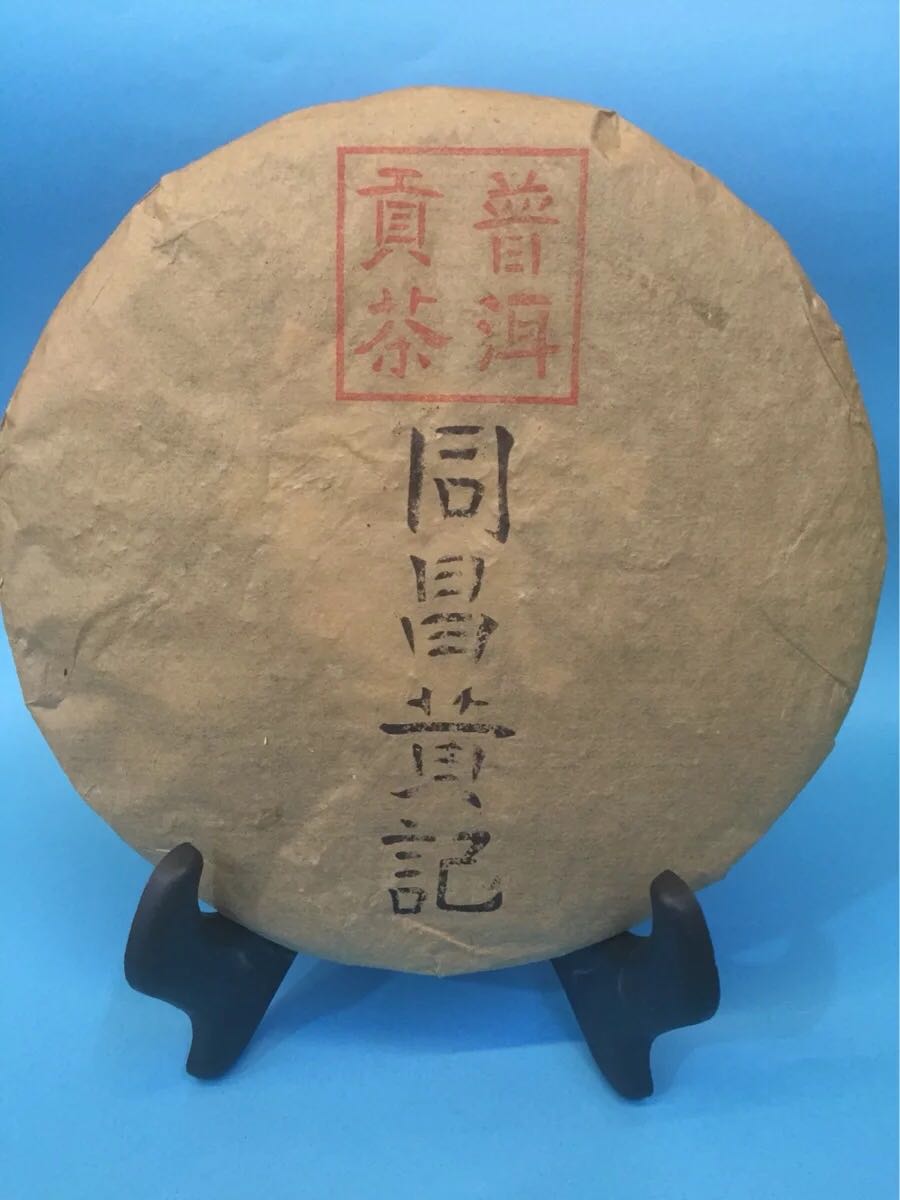 普洱
貢茶
同昌黃記